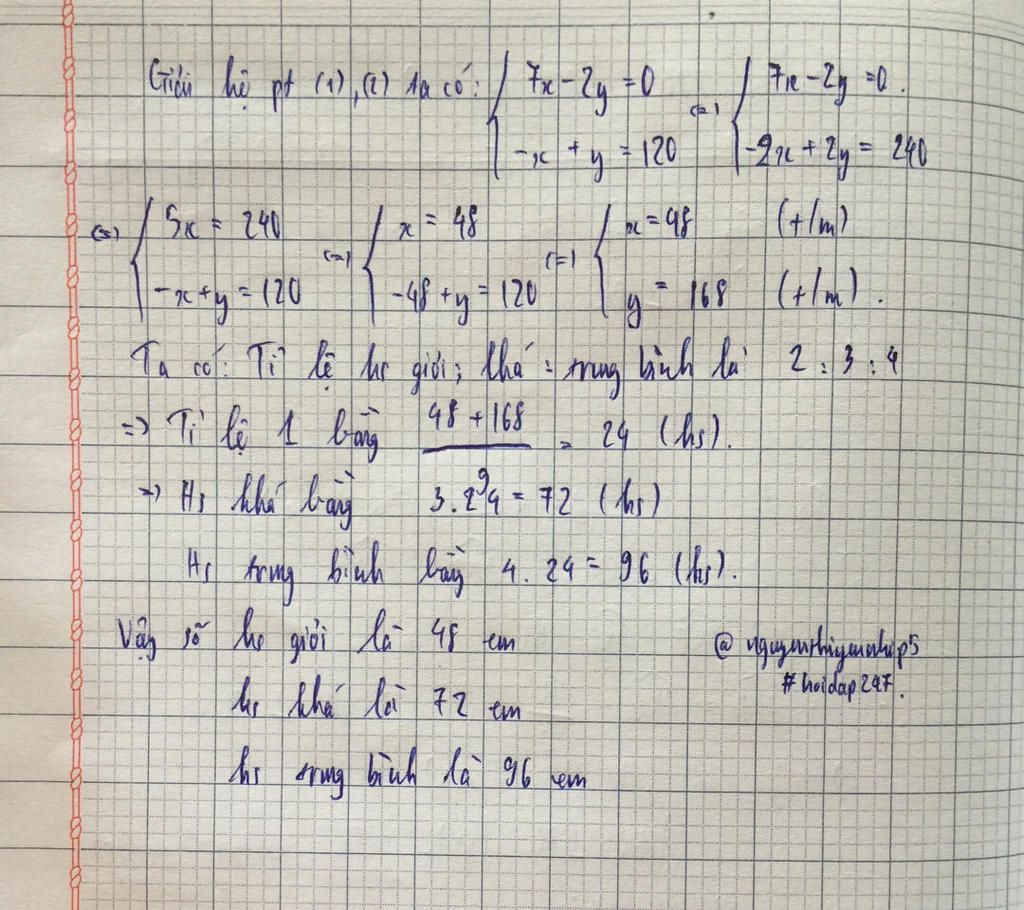 Giải hệ pt (1), (2) ta có: { 7x - 2y = 0 ; -x + y = 120 (=) { 7x - 2y = 0 . ; -2x + 2y = 240
(=) { 5x = 240 ; -x + y = 120 (=) { x = 48 ; -48 + y = 120 (=) { x = 48 (t/m) ; y = 168 (t/m) .
Ta có: Tỉ lệ hs giỏi : khá : trung bình là 2 : 3 : 4
=> Tỉ lệ 1 bằng (48 + 168)/9 = 24 (hs).
=> Hs khá bằng 3 . 24 = 72 (hs)
Hs trung bình bằng 4 . 24 = 96 (hs).
Vậy số hs giỏi là 48 em
hs khá là 72 em
hs trung bình là 96 em
#hoidap247.